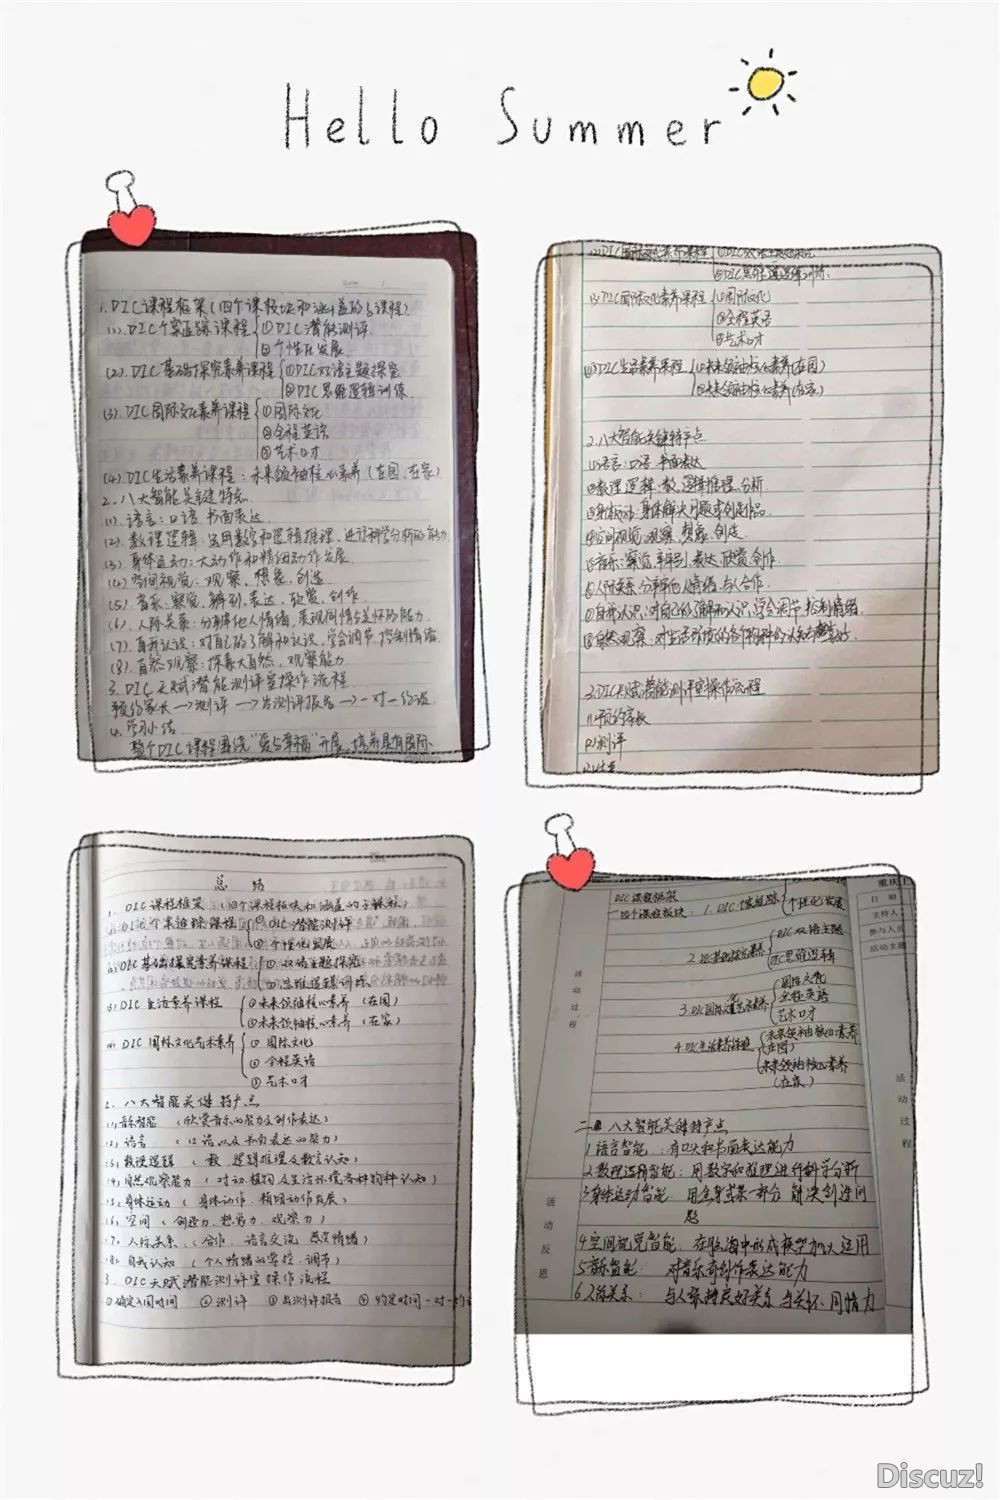 Hello Summer
1. DIC课程框架(四个课程板块和涵盖的子课程)
(1). DIC个案追踪课程 ①DIC潜能测评
②个性化发展
(2). DIC基础探究素养课程 ①DIC双语主题探究
②DIC思维逻辑训练.
(3). DIC国际文化素养课程 ①国际文化
②全程英语
③艺术口才
(4). DIC生活素养课程: 未来领袖核心素养(在园、在家)
2. 八大智能关键特点
(1). 语言: 口语 书面表达
(2). 数理逻辑: 运用数字和逻辑推理、进行科学分析的能力.
(3). 身体运动: 大动作和精细动作发展.
(4). 空间视觉: 观察、想象、创造
(5). 音乐: 察觉、辨别、表达、欣赏、创作.
(6). 人际关系: 分辨他人情绪、表现同情与关怀的能力.
(7). 自我认识: 对自己的了解和认识, 学会调节、控制情绪.
(8). 自然观察: 探索大自然, 观察能力
3. DIC天赋潜能测评室操作流程
预约家长→测评→出测评报告→一对一约谈.
4. 学习小结
整个DIC课程围绕“爱与幸福”开展, 培养具有国际
②DIC思维逻辑训练.
(3)DIC国际文化素养课程 ①国际文化
②全程英语
③艺术口才
(4)DIC生活素养课程 ①未来领袖核心素养(在园)
②未来领袖核心素养(在家)
2. 八大智能关键特点
①语言: 口语 书面表达
②数理逻辑: 数、逻辑推理、分析.
③身体运动: 身体解决问题或创造作品.
④空间视觉: 观察、想象、创造
⑤音乐: 察觉、辨别、表达、欣赏、创作.
⑥人际关系: 分辨他人情绪、与人合作.
⑦自我认识: 对自己的了解和认识, 学会调节、控制情绪.
3. DIC天赋潜能测评室操作流程
(1)预约家长
(2)测评
总结
1. DIC课程框架: (四个课程板块和涵盖的子课程)
(1)DIC个案追踪课程 ①DIC潜能测评
②个性化发展
(2)DIC基础探究素养课程 ①双语主题探究
②思维逻辑训练
(3)DIC生活素养课程 ①未来领袖核心素养 (在园)
②未来领袖核心素养 (在家)
(4)DIC国际文化艺术素养 ①国际文化
②全程英语
③艺术口才
2. 八大智能关键特点
(1)音乐智能 (欣赏音乐的能力及创作表达)
(2)语言 (口语以及书面表达的能力)
(3)数理逻辑 (数 逻辑推理及数字认知)
(4)自然观察能力 (对动、植物及生活环境各种物种认知)
(5)身体运动 (身体动作、精明动作发展)
(6)空间 (创造力、想象力、观察力)
(7)人际关系 (合作、语言交流、感觉情绪)
(8)自我认知 (个人情绪的掌控、调节)
3. DIC天赋潜能测评室操作流程
①确定入园时间 ②测评 ③出测评报告 ④约定时间一对一约谈
DIC课程框架
四个课程板块: 1. DIC个案追踪 个性化发展
2. DIC基础探究素养 DIC双语主题
DIC思维逻辑
国际文化
全程英语
艺术口才
4. DIC生活素养课程 未来领袖核心素养
(在园)
未来领袖核心素养
(在家)
二 八大智能关键特点
1 语言智能: 有口头和书面表达能力
2. 数理逻辑智能: 用数字和推理进行科学分析
3 身体运动智能: 用全身或某一部分 解决创造问
题
4 空间视觉智能: 在脑海中形成模型加以运用
5 音乐智能: 对音乐创作表达能力
6 人际关系: 与人保持良好关系 与关怀 同情力
重庆
日期
主持人
参与人员
活动主题
活动过程
活动过程
活动反思
Discuz!